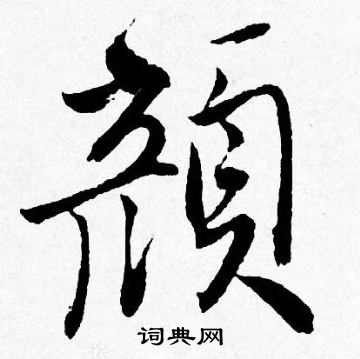 顏
词典网